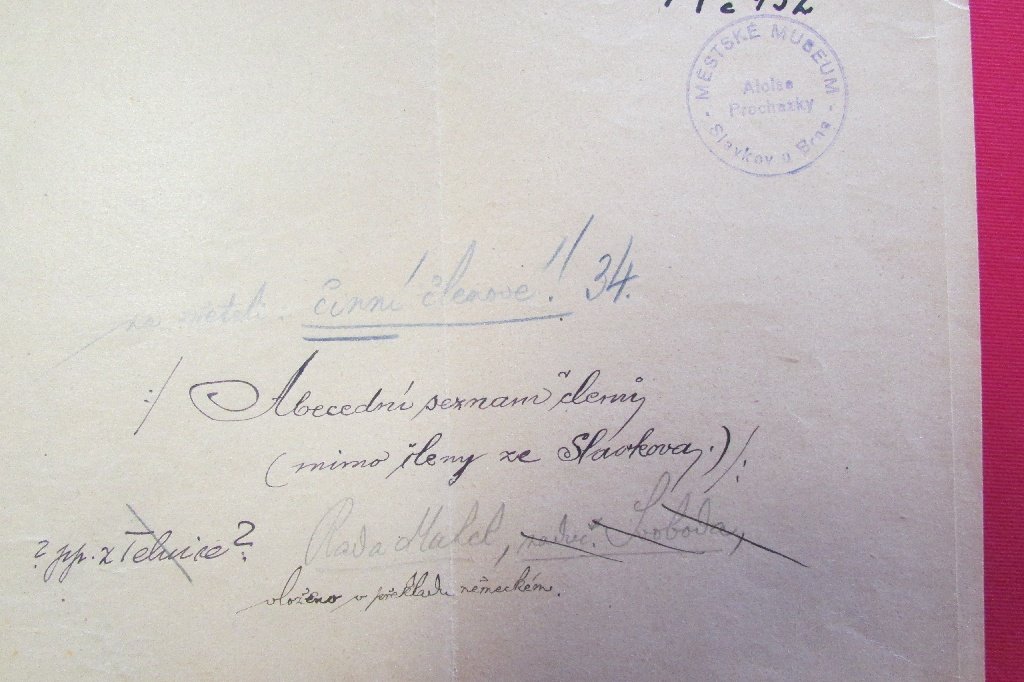 MĚSTSKÉ MUSEUM
Aloise
Procházky
Slavkov u Brna
činní členové!! 34.
:/ Abecední seznam členů
(mimo členy ze Slavkova.)/:
? pp. z Telnice?
Rada Matel, naduč. Svoboda,
vloženo v překladu německém.